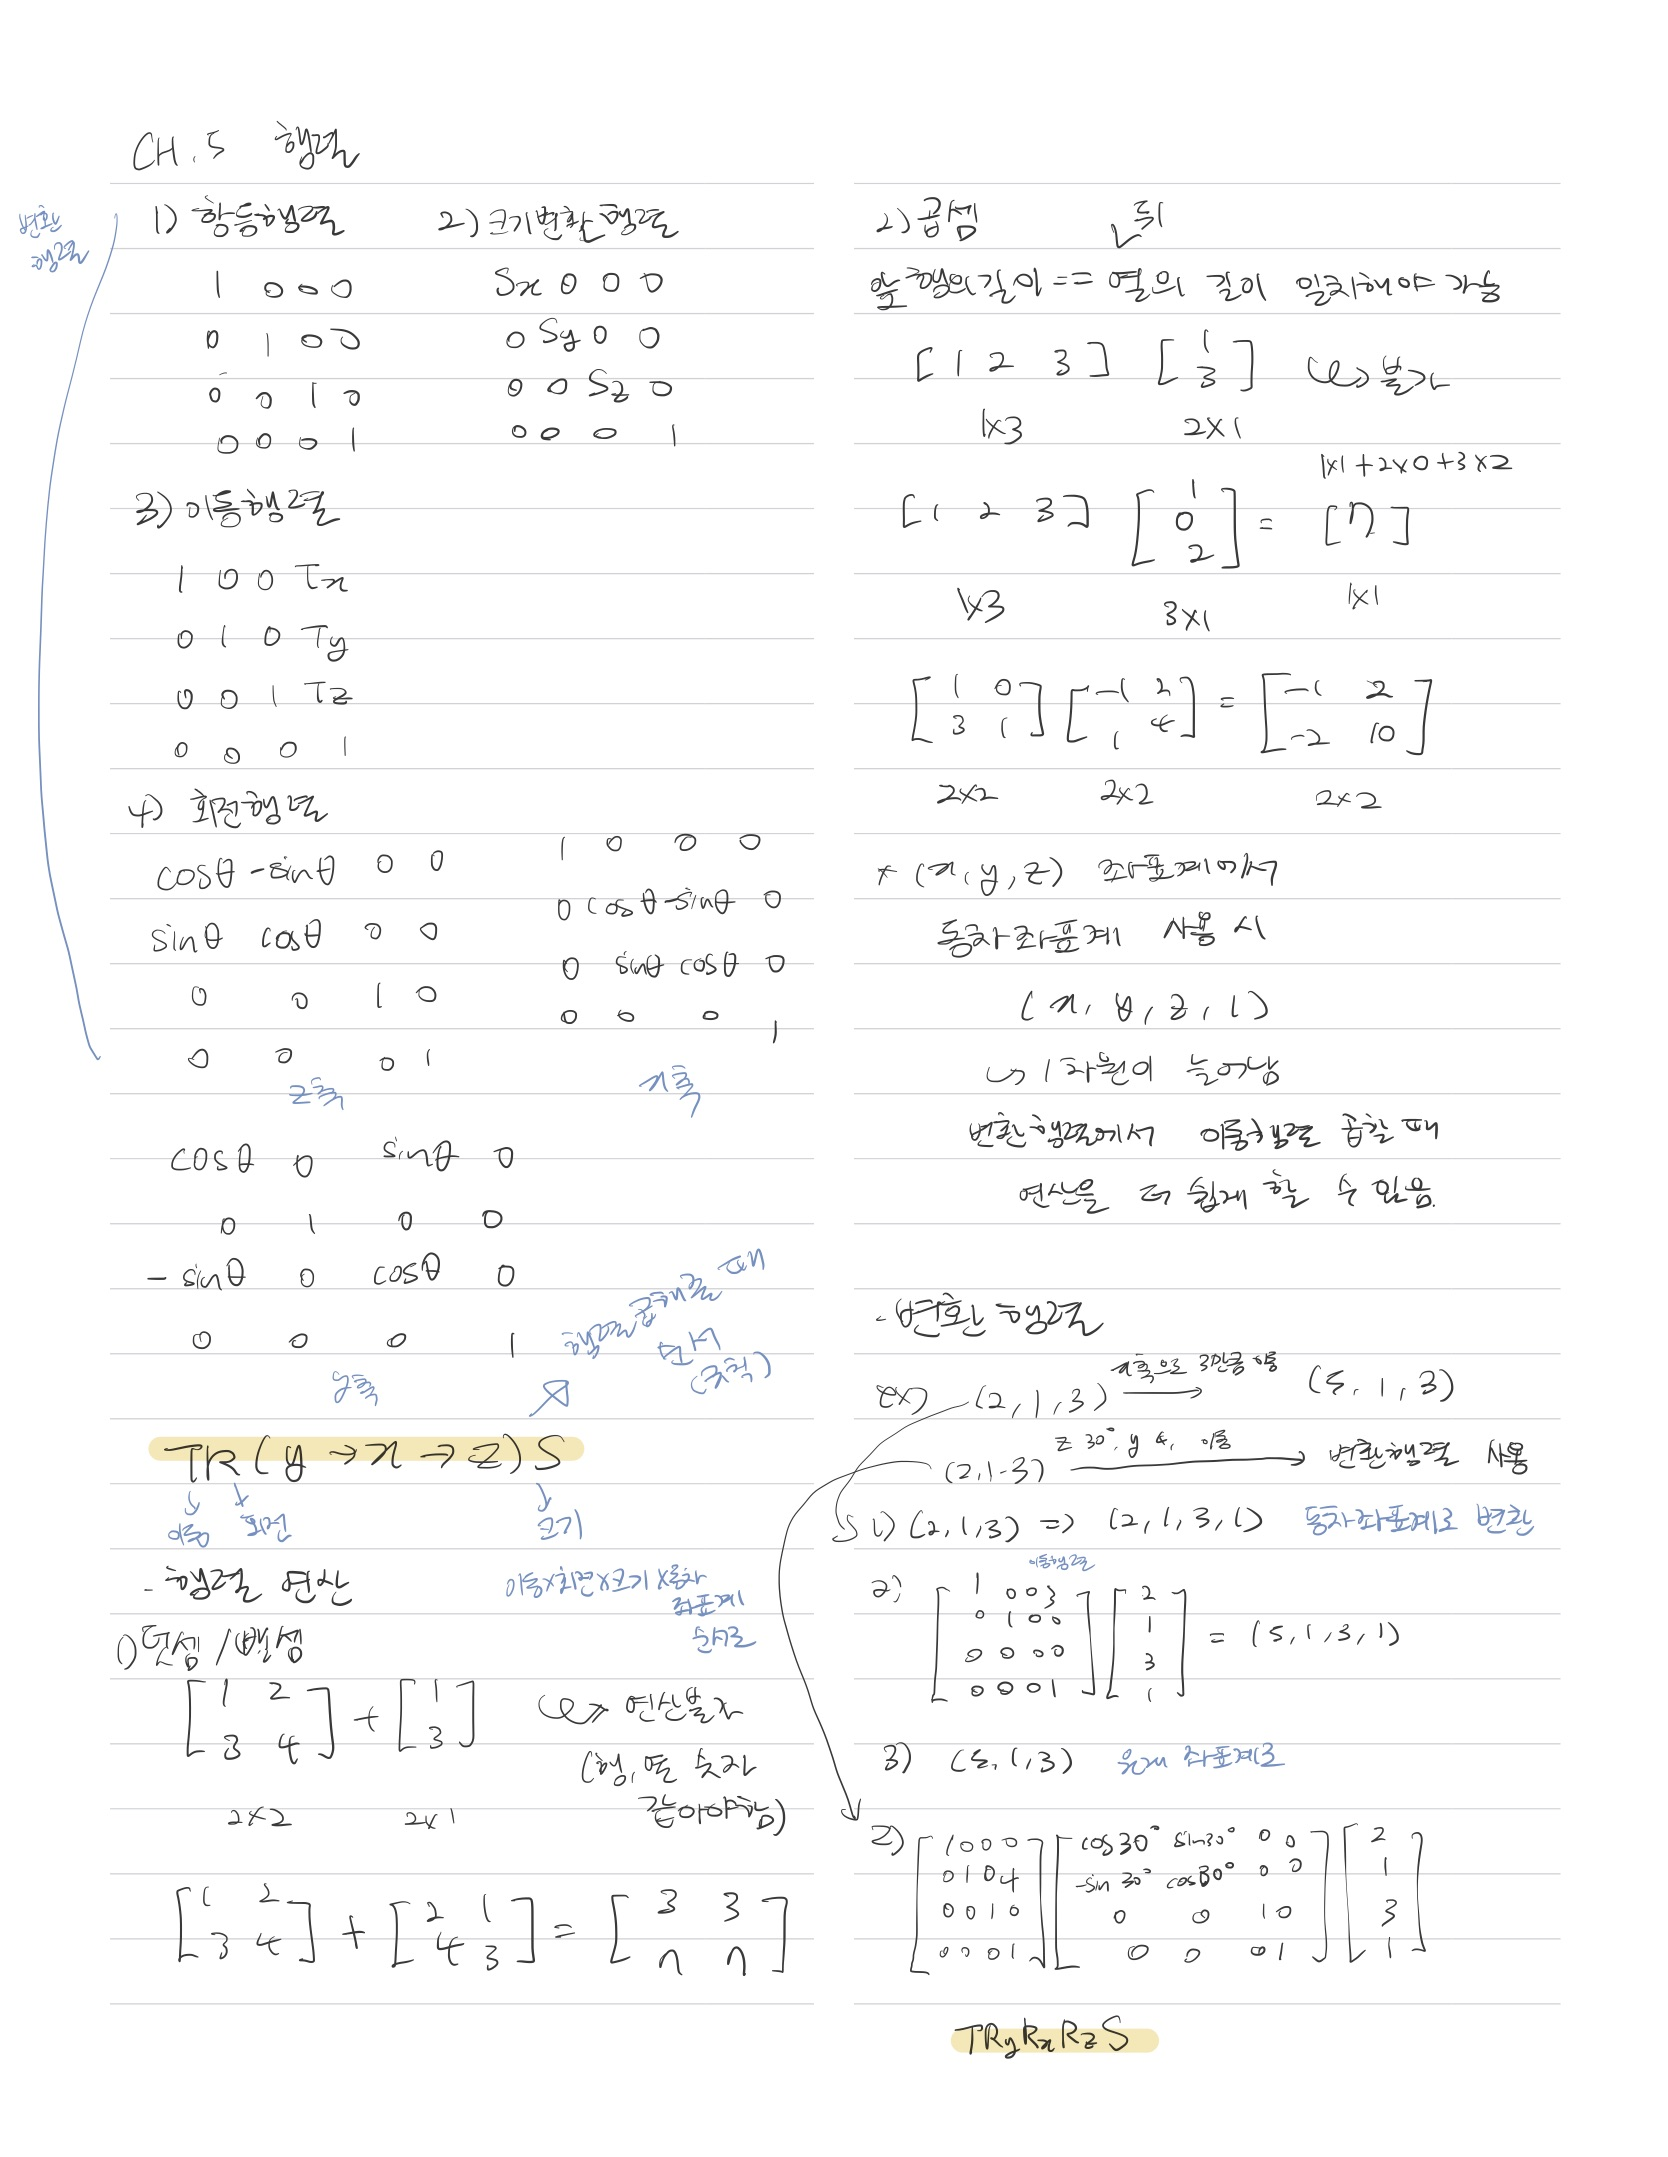 CH.5 행렬
변환
행렬
1) 항등행렬 2) 크기변환행렬
1 0 0 0 Sx 0 0 0
0 1 0 0 0 Sy 0 0
0 0 1 0 0 0 Sz 0
0 0 0 1 0 0 0 1
3) 이동행렬
1 0 0 Tx
0 1 0 Ty
0 0 1 Tz
0 0 0 1
4) 회전행렬
cosθ -sinθ 0 0
sinθ cosθ 0 0
0 0 1 0
0 0 0 1
z축
1 0 0 0
0 cosθ -sinθ 0
0 sinθ cosθ 0
0 0 0 1
x축
cosθ 0 sinθ 0
0 1 0 0
-sinθ 0 cosθ 0
0 0 0 1
y축
행렬 곱해줄 때
순서
(규칙)
TR(y→x→z)S
이동 회전 크기
- 행렬 연산
이동x회전x크기x동차
좌표계
순서로
1) 덧셈 / 뺄셈
[1 2 + [1 ↪ 연산불가
3 4] 3] (행, 열 숫자
2x2 2x1 같아야함)
[1 2 + [2 1 = [3 3
3 4] 4 3] 7 7]
2) 곱셈 뒤
앞 행의 길이 == 열의 길이 일치해야 가능
[1 2 3] [1 ↪ 불가
3]
1x3 2x1
1x1+2x0+3x2
[1 2 3] [1 = [7]
0
2]
1x3 3x1 1x1
[1 0 [-1 2 = [-1 2
3 1] 1 4] -2 10]
2x2 2x2 2x2
* (x, y, z) 좌표계에서
동차좌표계 사용 시
(x, y, z, 1)
↪ 1차원이 늘어남
변환행렬에서 이동행렬 곱할 때
연산을 더 쉽게 할 수 있음.
- 변환 행렬
x축으로 3만큼 이동
ex) (2, 1, 3) → (5, 1, 3)
z 30°, y 4, 이동
(2,1-3) → 변환행렬 사용
1) (2,1,3) => (2,1,3,1) 동차좌표계로 변환
이동행렬
2) [1 0 0 3 [2
0 1 0 0 1 = (5,1,3,1)
0 0 0 0 3
0 0 0 1] 1]
3) (5,1,3) 원래 좌표계로
2) [1 0 0 0 [cos30° sin30° 0 0 [2
0 1 0 4 -sin30° cos30° 0 0 1
0 0 1 0 0 0 1 0 3
0 0 0 1] 0 0 0 1] 1]
TRyRxRzS